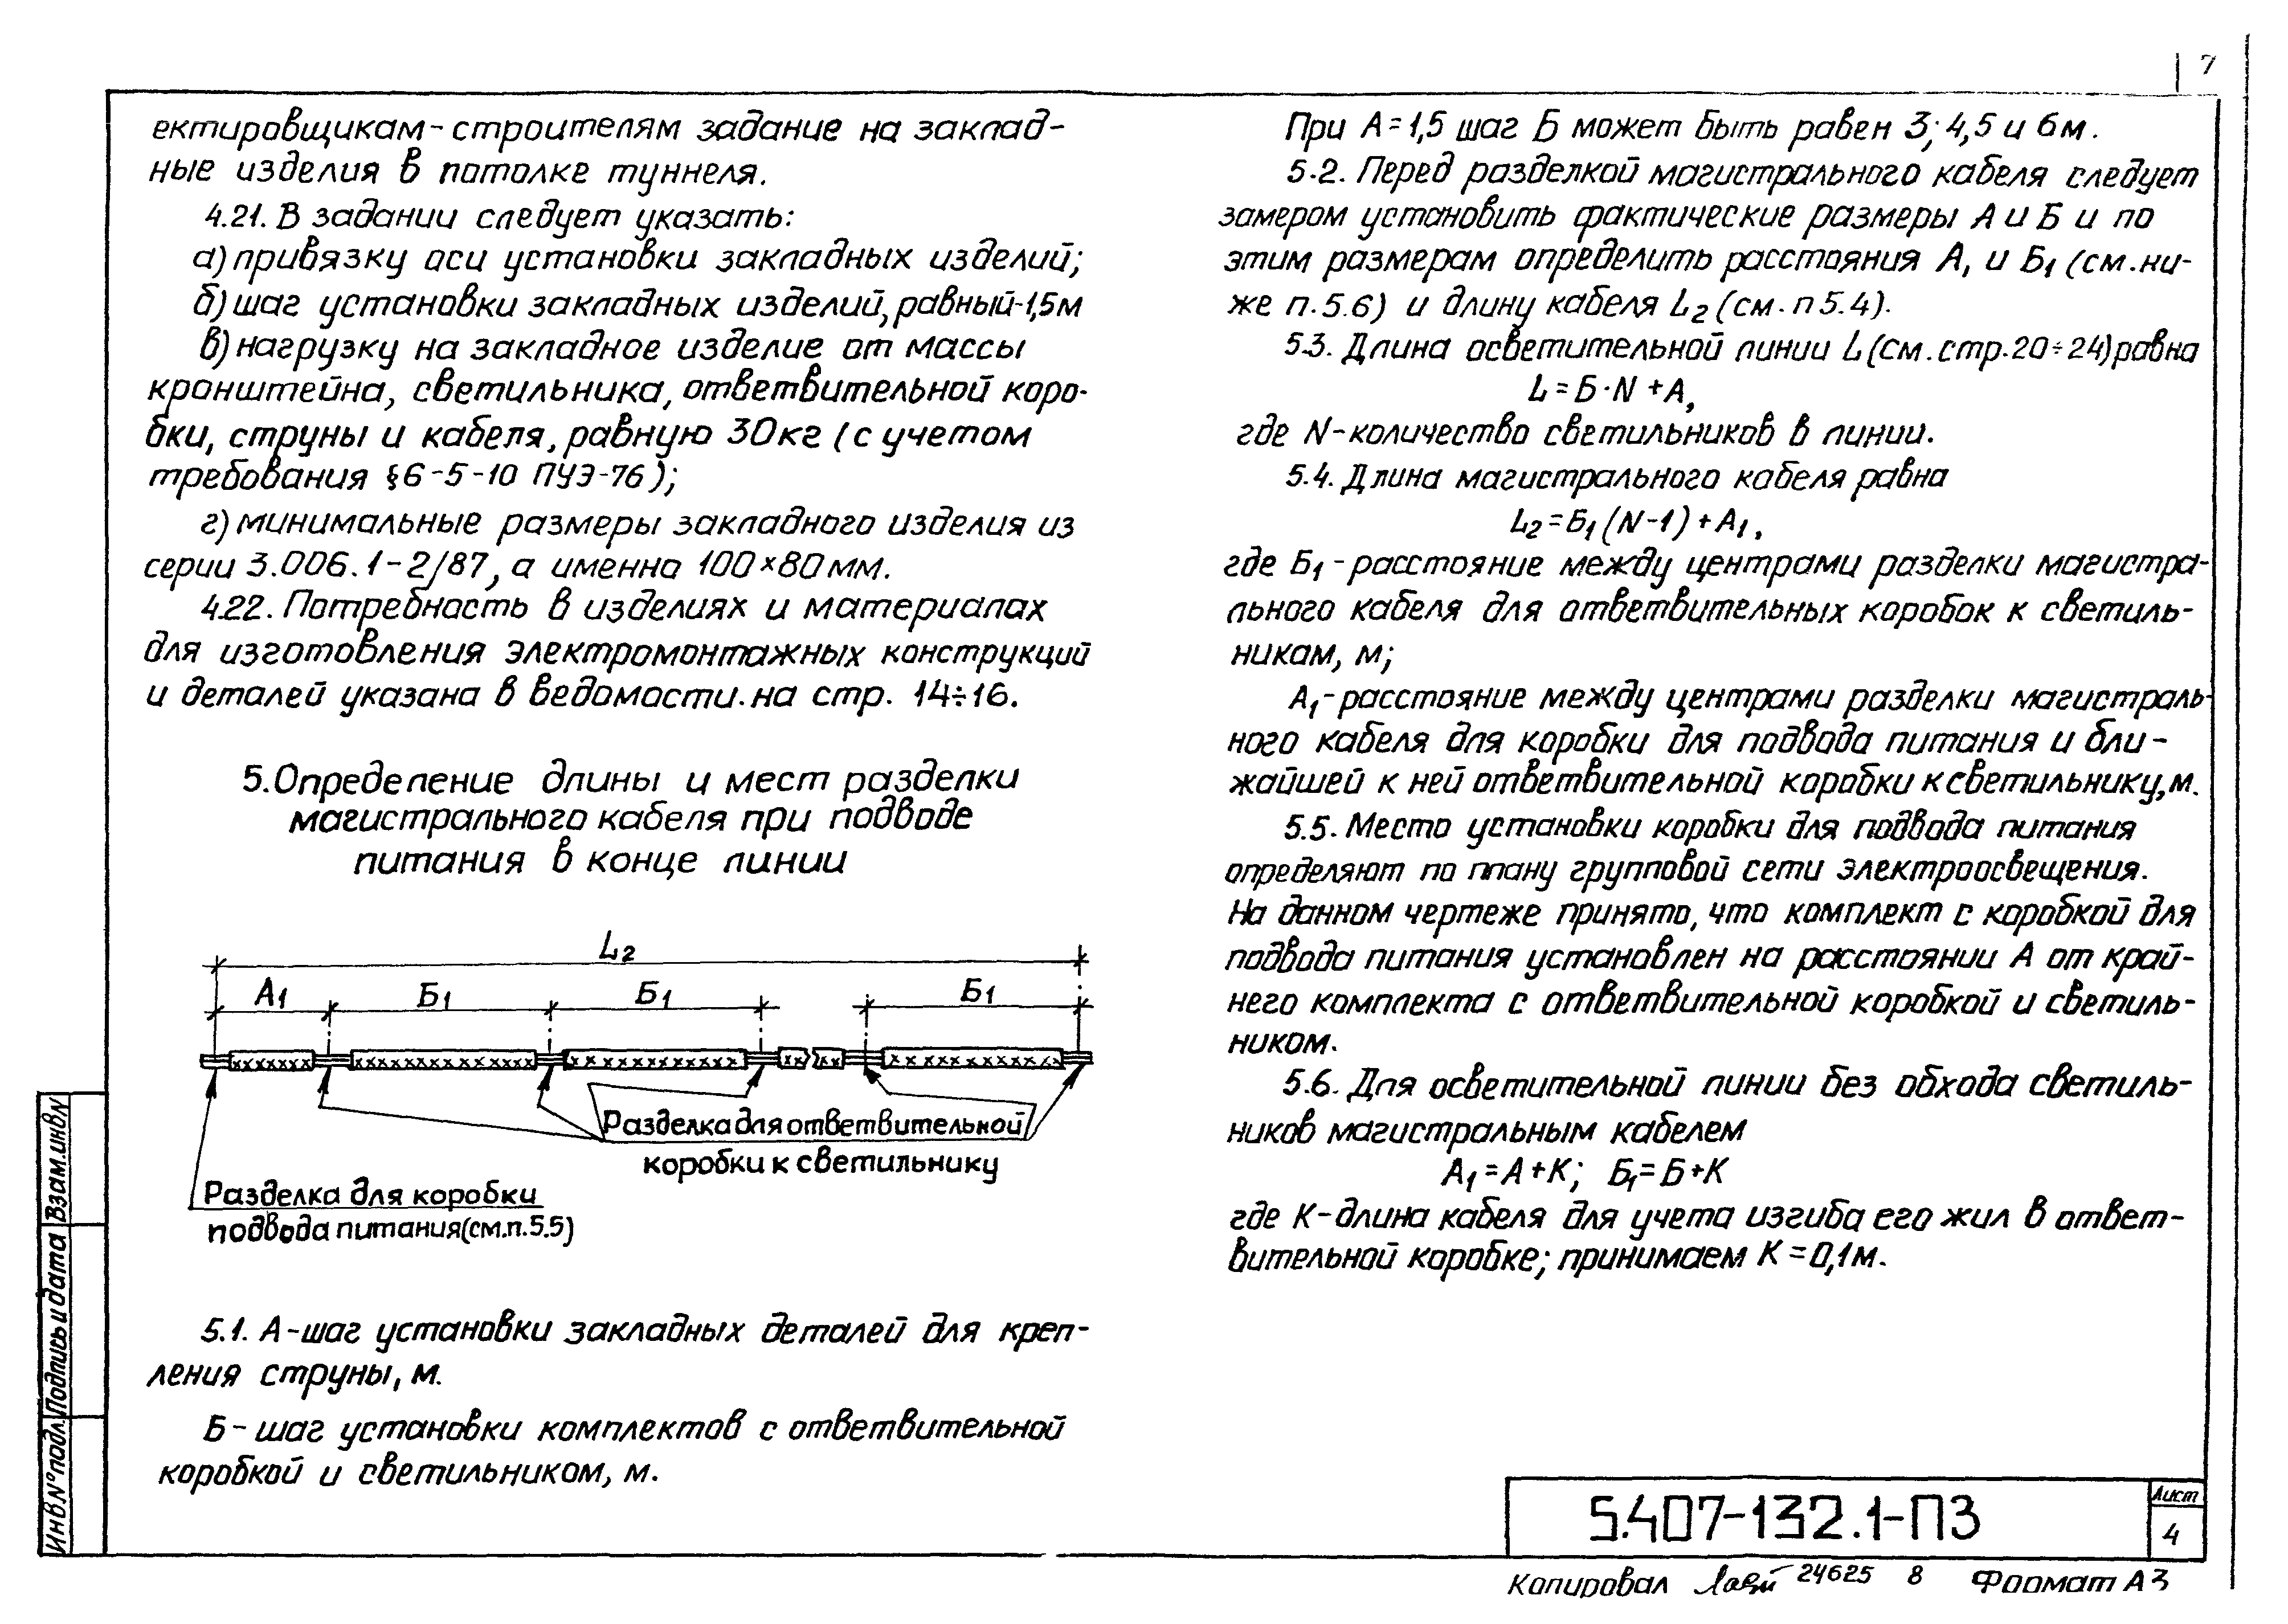 7
ектировщикам-строителям задание на заклад-
ные изделия в потолке туннеля.
4.21. В задании следует указать:
а) привязку оси установки закладных изделий;
б) шаг установки закладных изделий, равный-1,5м
в) нагрузку на закладное изделие от массы
кронштейна, светильника, ответвительной коро-
бки, струны и кабеля, равную 30кг (с учетом
требования §6-5-10 ПУЭ-76);
г) минимальные размеры закладного изделия из
серии 3.006.1-2/87, а именно 100×80мм.
4.22. Потребность в изделиях и материалах
для изготовления электромонтажных конструкций
и деталей указана в ведомости. на стр. 14÷16.
5. Определение длины и мест разделки
магистрального кабеля при подводе
питания в конце линии
L2
А1
Б1
Б1
Б1
Разделка для ответвительной
коробки к светильнику
Разделка для коробки
подвода питания(см.п.5.5)
5.1. А-шаг установки закладных деталей для креп-
ления струны, м.
Б-шаг установки комплектов с ответвительной
коробкой и светильником, м.
При А=1,5 шаг Б может быть равен 3; 4,5 и 6м.
5.2. Перед разделкой магистрального кабеля следует
замером установить фактические размеры А и Б и по
этим размерам определить расстояния А1 и Б1 (см.ни-
же п.5.6) и длину кабеля L2 (см.п 5.4).
5.3. Длина осветительной линии L (см.стр.20÷24) равна
L=Б·N+А,
где N-количество светильников в линии.
5.4. Длина магистрального кабеля равна
L2=Б1(N-1)+А1,
где Б1-расстояние между центрами разделки магистра-
льного кабеля для ответвительных коробок к светиль-
никам, м;
А1-расстояние между центрами разделки магистраль-
ного кабеля для коробки для подвода питания и бли-
жайшей к ней ответвительной коробки к светильнику, м.
5.5. Место установки коробки для подвода питания
определяют по плану групповой сети электроосвещения.
На данном чертеже принято, что комплект с коробкой для
подвода питания установлен на расстоянии А от край-
него комплекта с ответвительной коробкой и светиль-
ником.
5.6. Для осветительной линии без обхода светиль-
ников магистральным кабелем
А1=А+К; Б1=Б+К
где К-длина кабеля для учета изгиба его жил в ответ-
вительной коробке; принимаем К=0,1м.
Взам.инв.N
Подпись и дата
Инв.N°подл.
5.407-132.1-ПЗ
Лист
4
Копировал 24625 8 Формат А3